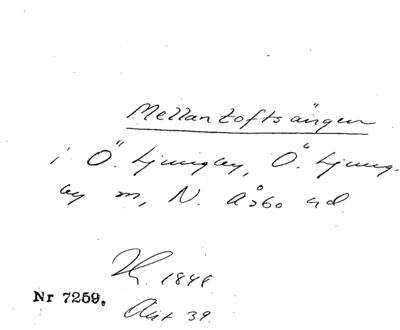 Mellantoftsängen
i Ö. Ljungby, Ö. Ljung-
by sn, N. Åsbo hd.
1848
Nr 7259.
Akt 39